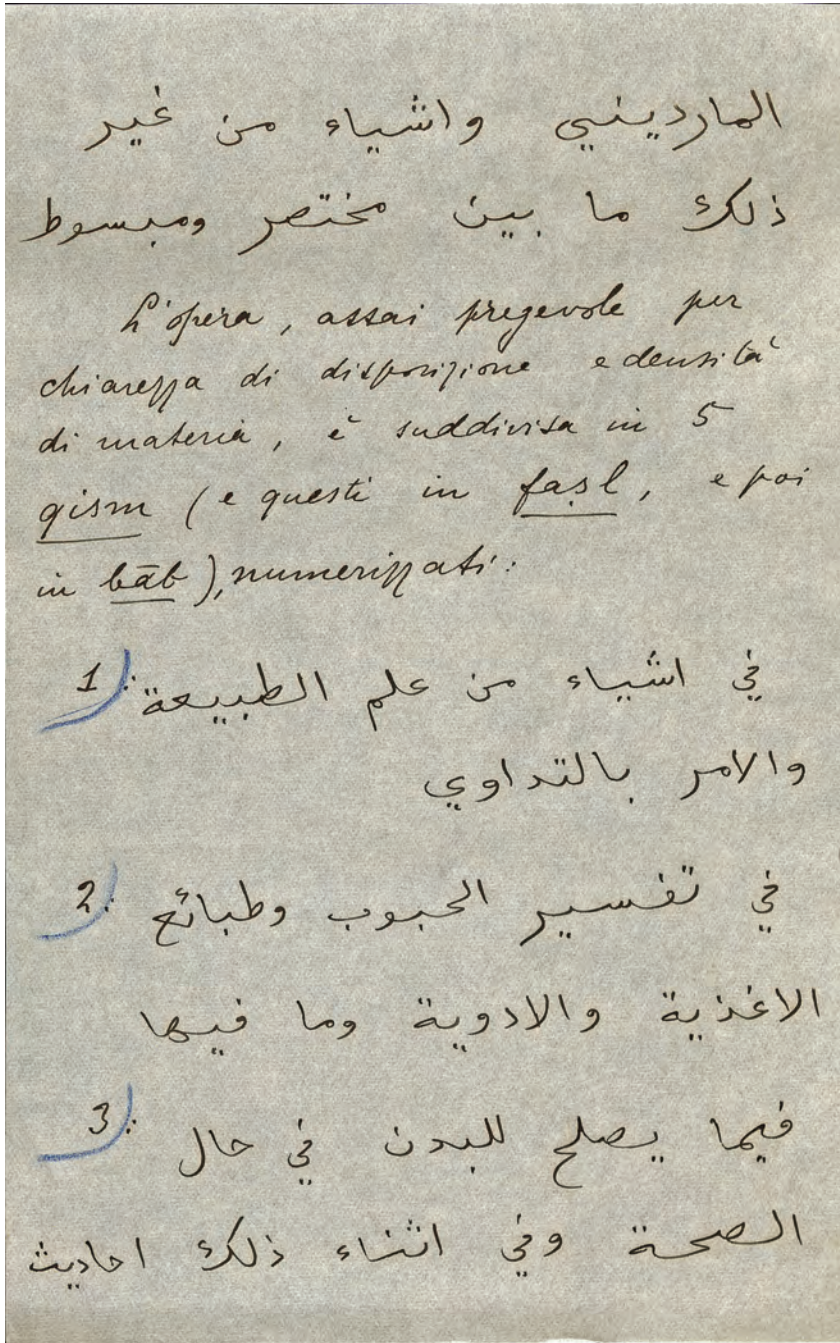 المارديني واشياء من غير
ذلك ما بين مختصر ومبسوط
L'opera, assai pregevole per
chiarezza di disposizione e densità
di materia, è suddivisa in 5
qism (e questi in faṣl, e poi
in bāb), numerizzati:
1: في اشياء من علم الطبيعة
والامر بالتداوي
2: في تفسير الحبوب وطبائع
الاغذية والادوية وما فيها
3: فيما يصلح للبدن في حال
الصحة وفي اثناء ذلك احاديث